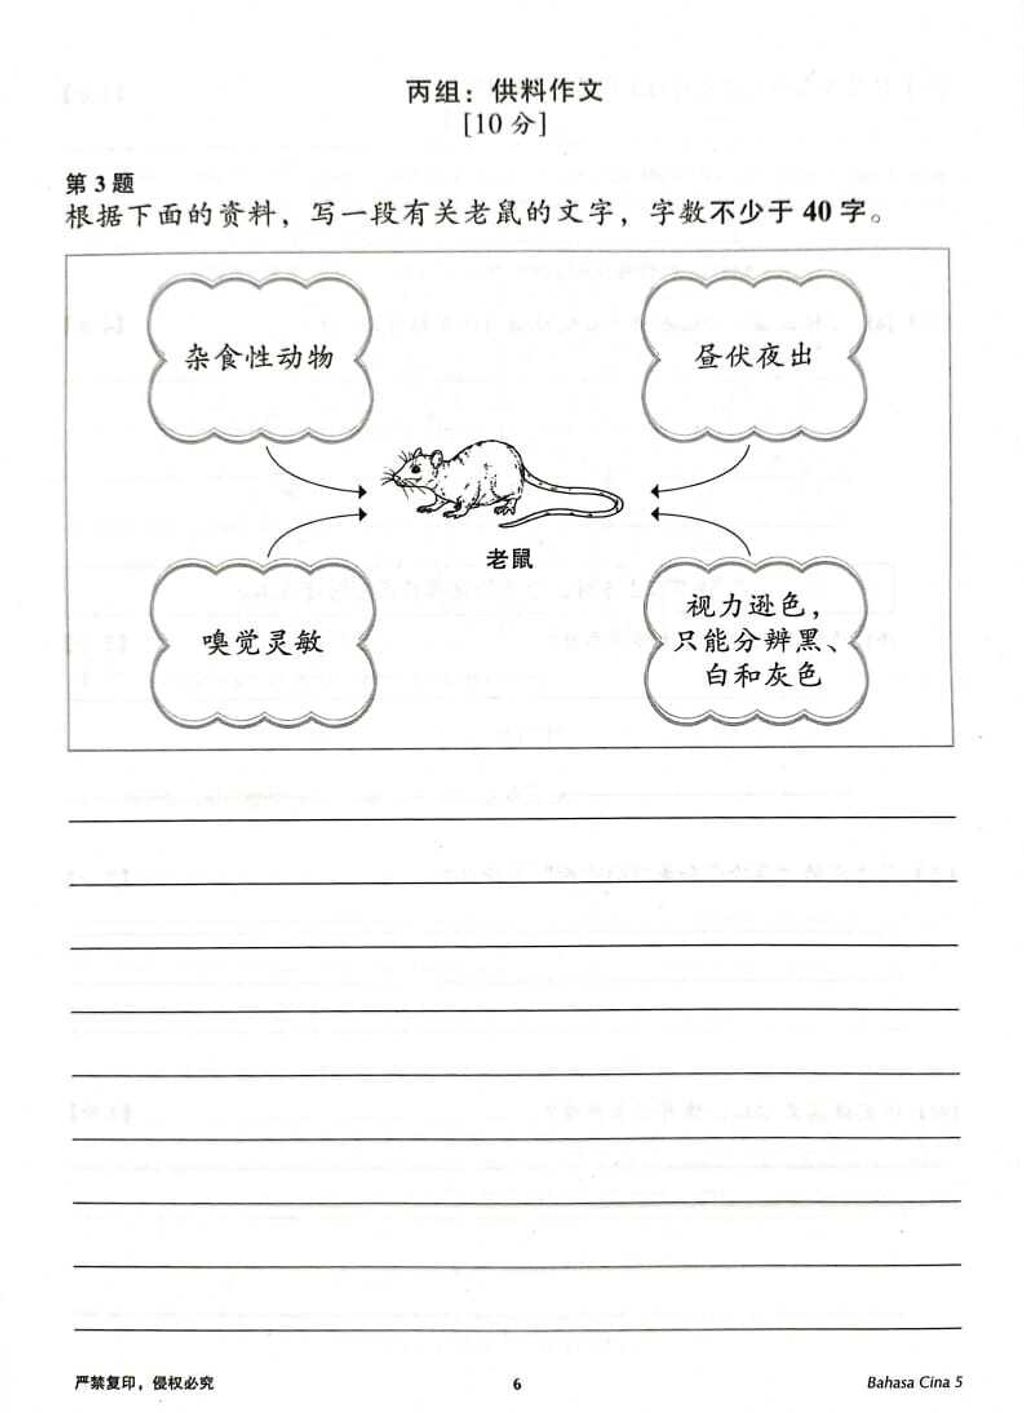 丙组：供料作文
[10 分]
第 3 题
根据下面的资料，写一段有关老鼠的文字，字数不少于 40 字。
杂食性动物
昼伏夜出
老鼠
嗅觉灵敏
视力逊色，
只能分辨黑、
白和灰色
严禁复印，侵权必究
6
Bahasa Cina 5